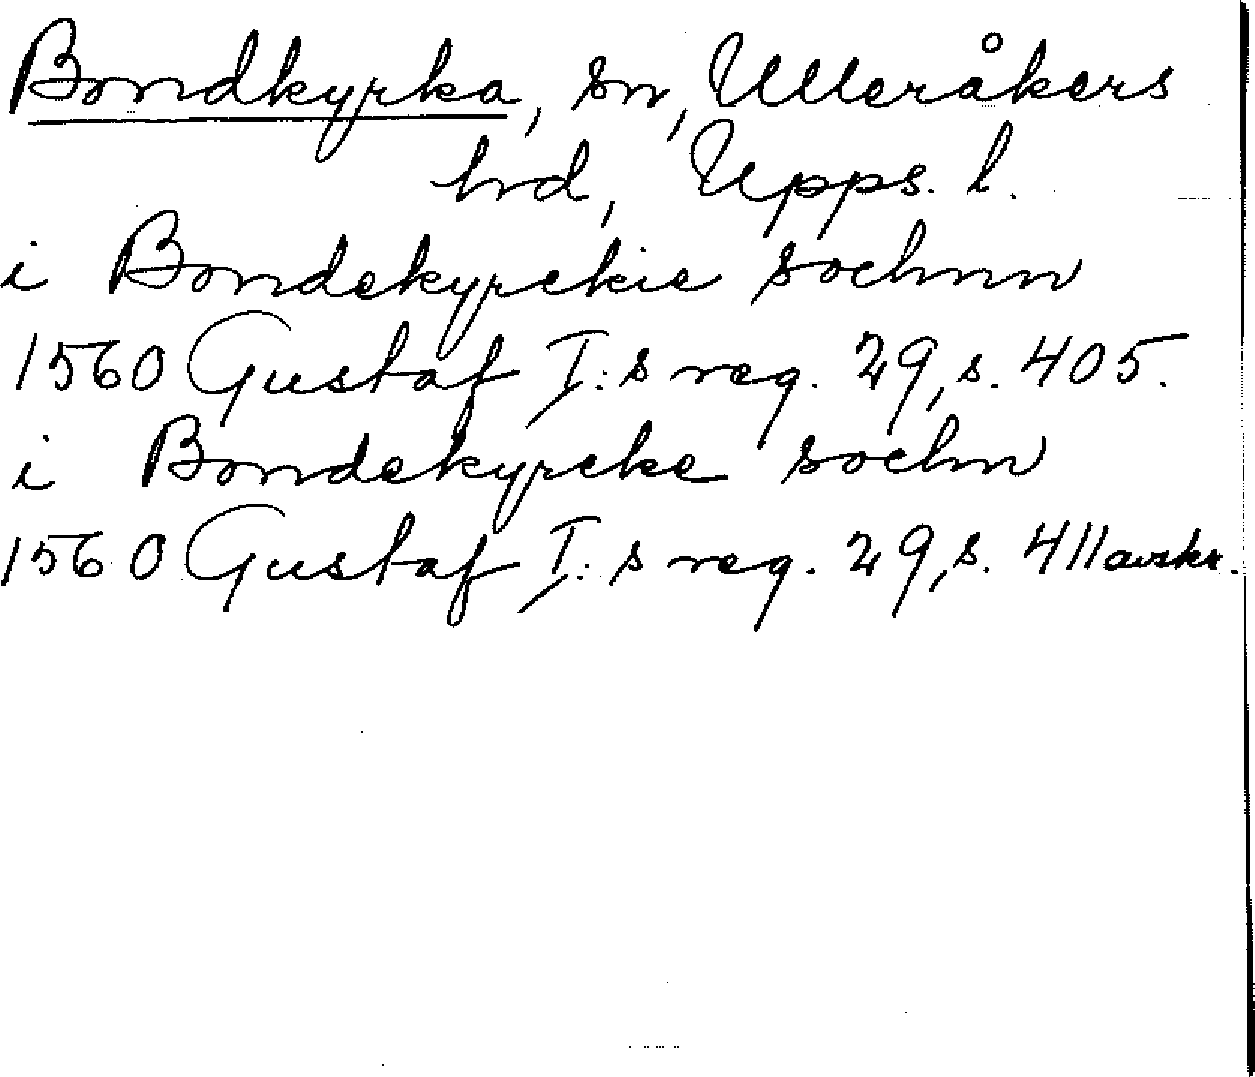 Bondkyrka, sn, Ulleråkers
hrd, Upps. l.
i Bondekyrckie sochnn
1560 Gustaf I:s reg. 29, s. 405.
i Bondekyrcke sochn
1560 Gustaf I:s reg. 29, s. 411 avskr.